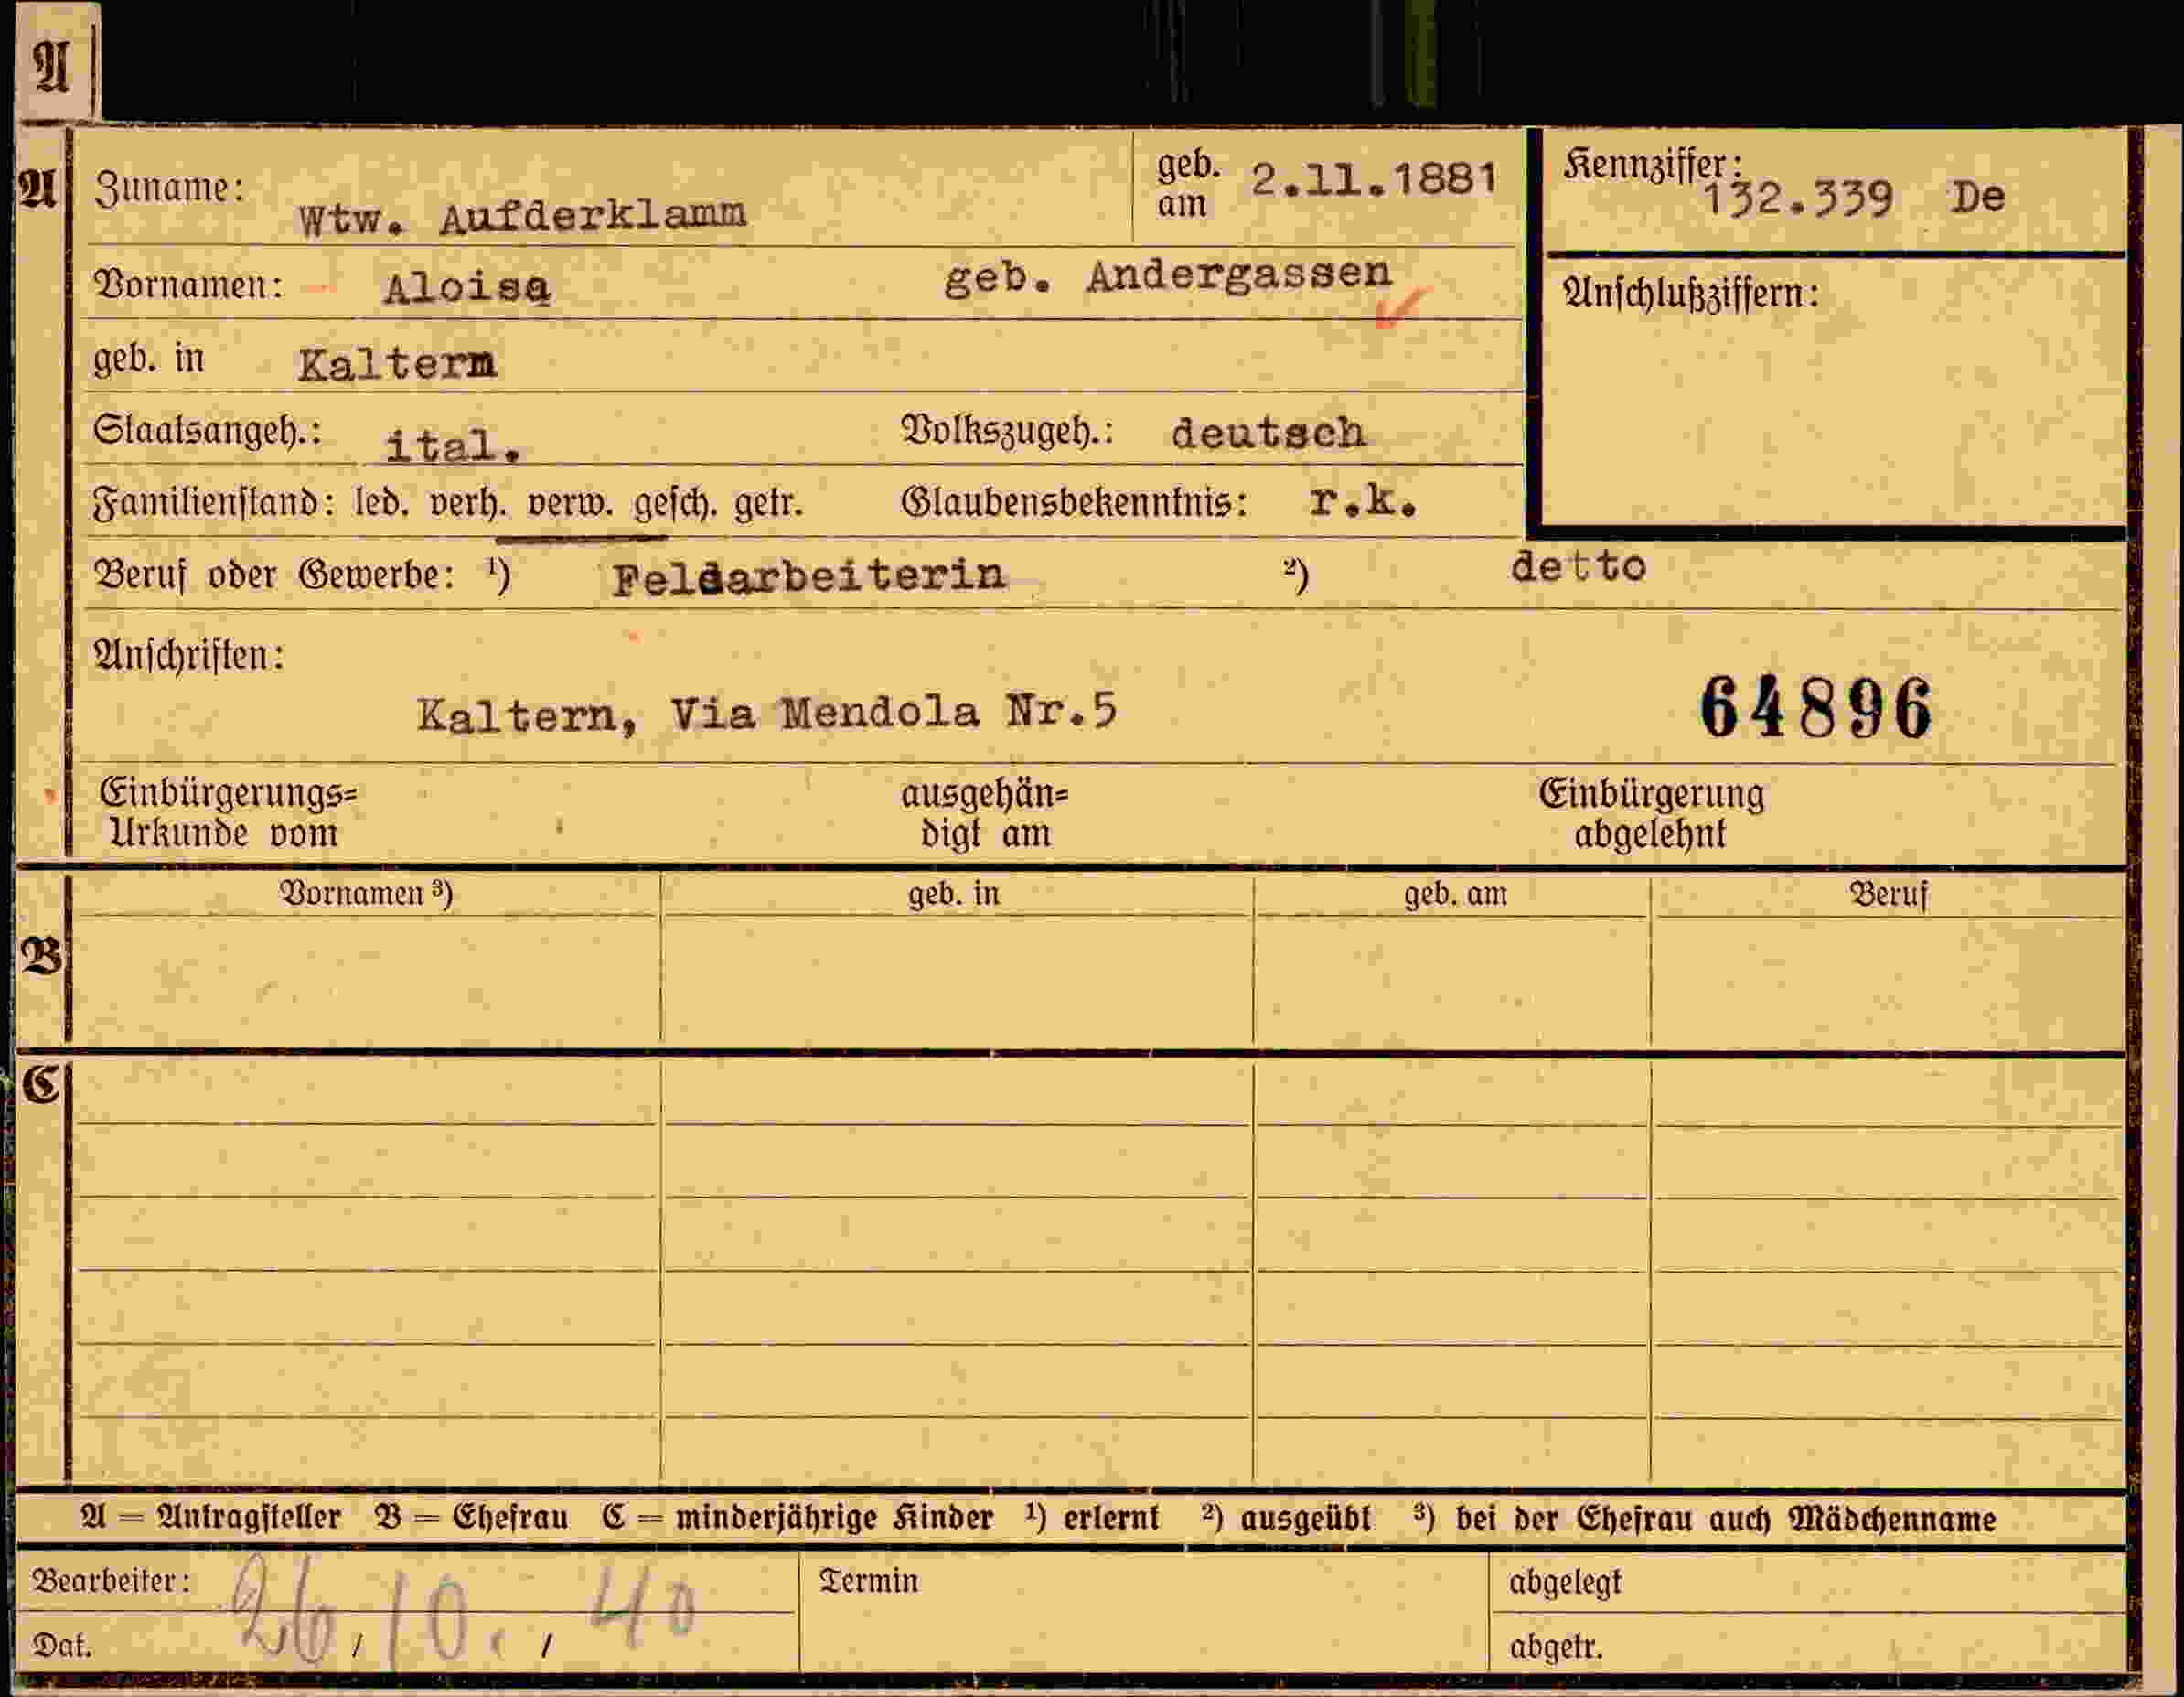 A
A
Zuname: Wtw. Aufderklamm geb. am 2.11.1881 Kennziffer: 132.339 De
Vornamen: Aloisa geb. Andergassen Anschlußziffern:
geb. in Kalterm
Staatsangeh.: ital. Volkszugeh.: deutsch
Familienstand: led. verh. verw. gesch. getr. Glaubensbekenntnis: r.k.
Beruf oder Gewerbe: ¹) Feldarbeiterin ²) detto
Anschriften:
Kaltern, Via Mendola Nr.5 64896
Einbürgerungs= ausgehän= Einbürgerung
Urkunde vom digt am abgelehnt
Vornamen ³) geb. in geb. am Beruf
B
C
A = Antragsteller B = Ehefrau C = minderjährige Kinder ¹) erlernt ²) ausgeübt ³) bei der Ehefrau auch Mädchenname
Bearbeiter: Termin abgelegt
Dat. 26/10. / 40 abgetr.